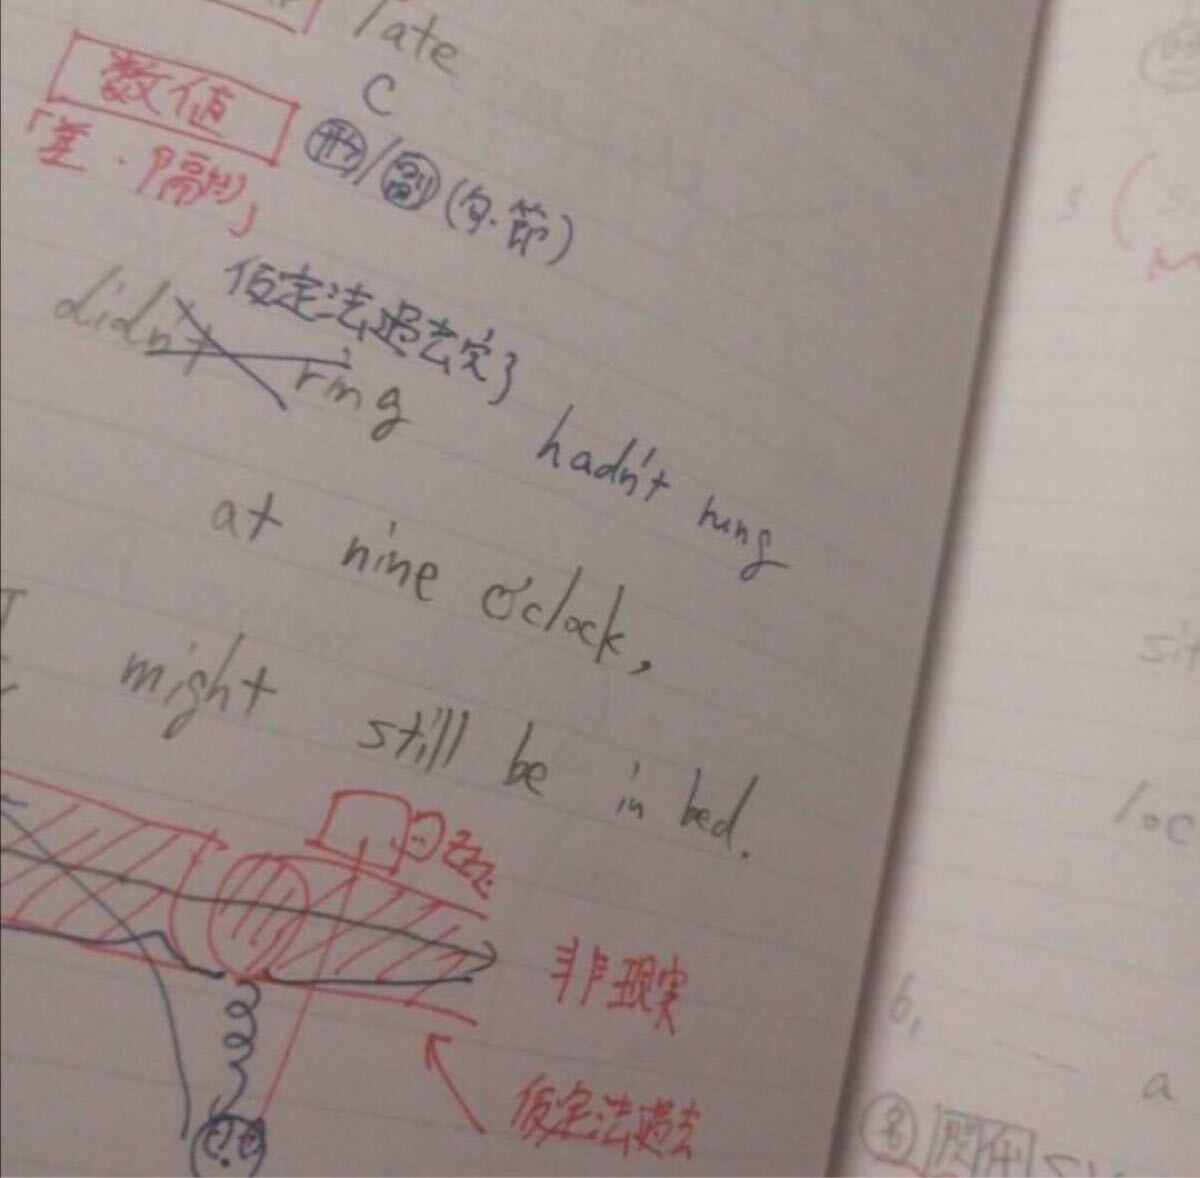 late
数値
C
「差・隔たり」
形/副(句・節)
仮定法過去完了
didn't ring hadn't rung
at nine o'clock,
I might still be in bed.
zzz
非現実
仮定法過去
b,
a
名 関代